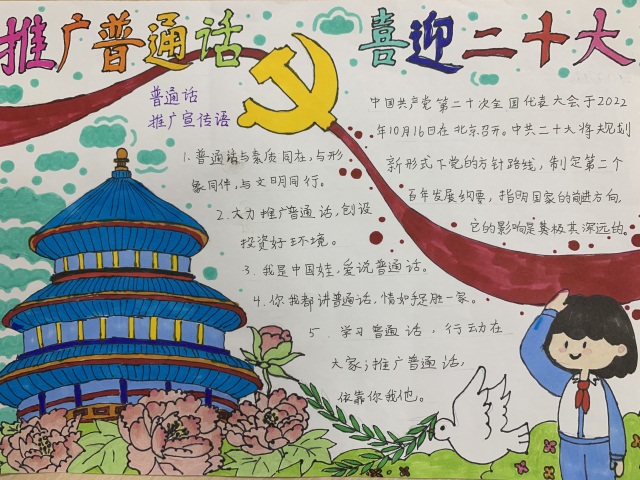 推广普通话 喜迎二十大
普通话
推广宣传语
1.普通话与素质同在,与形
象同伴,与文明同行。
2.大力推广普通话,创设
投资好环境。
3.我是中国娃,爱说普通话。
4.你我都讲普通话,情如手足胜一家。
5.学习普通话,行动在
大家;推广普通话,
依靠你我他。
中国共产党第二十次全国代表大会于2022
年10月16日在北京召开。中共二十大将规划
新形式下党的方针路线,制定第二个
百年发展纲要,指明国家的前进方向,
它的影响是其极其深远的。